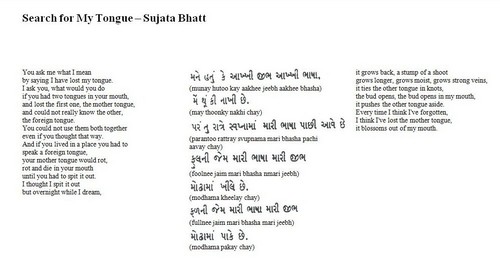 Search for My Tongue – Sujata Bhatt
You ask me what I mean
by saying I have lost my tongue.
I ask you, what would you do
if you had two tongues in your mouth,
and lost the first one, the mother tongue,
and could not really know the other,
the foreign tongue.
You could not use them both together
even if you thought that way.
And if you lived in a place you had to
speak a foreign tongue,
your mother tongue would rot,
rot and die in your mouth
until you had to spit it out.
I thought I spit it out
but overnight while I dream,
મને હતું કે આખ્ખી જીભ આખ્ખી ભાષા,
(munay hutoo kay aakhee jeebh aakhee bhasha)
મેં થૂંકી નાખી છે.
(may thoonky nakhi chay)
પરંતુ રાત્રે સ્વપ્નામાં મારી ભાષા પાછી આવે છે
(parantoo rattray svupnama mari bhasha pachi
aavay chay)
ફુલની જેમ મારી ભાષા મારી જીભ
(foolnee jaim mari bhasha nmari jeebh)
મોઢામાં ખીલે છે.
(modhama kheelay chay)
ફળની જેમ મારી ભાષા મારી જીભ
(fullnee jaim mari bhasha mari jeebh)
મોઢામાં પાકે છે.
(modhama pakay chay)
it grows back, a stump of a shoot
grows longer, grows moist, grows strong veins,
it ties the other tongue in knots,
the bud opens, the bud opens in my mouth,
it pushes the other tongue aside.
Every time I think I've forgotten,
I think I've lost the mother tongue,
it blossoms out of my mouth.